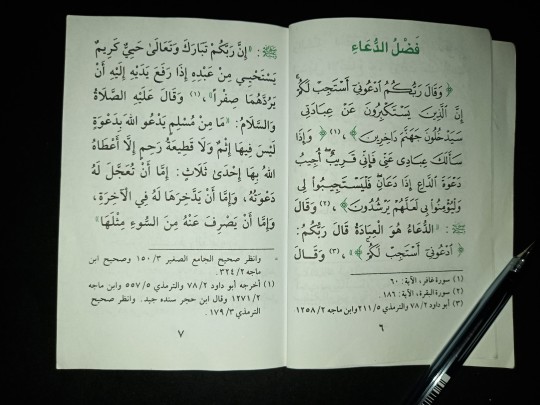 فَضْلُ الدُّعَاءِ
﴿ وَقَالَ رَبُّكُمُ ادْعُونِي أَسْتَجِبْ لَكُمْ
إِنَّ الَّذِينَ يَسْتَكْبِرُونَ عَنْ عِبَادَتِي
سَيَدْخُلُونَ جَهَنَّمَ دَاخِرِينَ ﴾ (١)، ﴿ وَإِذَا
سَأَلَكَ عِبَادِي عَنِّي فَإِنِّي قَرِيبٌ أُجِيبُ
دَعْوَةَ الدَّاعِ إِذَا دَعَانِ فَلْيَسْتَجِيبُوا لِي
وَلْيُؤْمِنُوا بِي لَعَلَّهُمْ يَرْشُدُونَ ﴾، (٢) وَقَالَ
ﷺ: «الدُّعَاءُ هُوَ الْعِبَادَةُ قَالَ رَبُّكُمُ:
﴿ ادْعُونِي أَسْتَجِبْ لَكُمْ ﴾»، (٣) وَقَالَ
(١) سورة غافر، الآية: ٦٠
(٢) سورة البقرة، الآية: ١٨٦
(٣) أبو داود ٧٨/٢ والترمذي ٢١١/٥ وابن ماجه ١٢٥٨/٢
٦
ﷺ: «إِنَّ رَبَّكُمْ تَبَارَكَ وَتَعَالَىٰ حَيِيٌّ كَرِيمٌ
يَسْتَحْيِي مِنْ عَبْدِهِ إِذَا رَفَعَ يَدَيْهِ إِلَيْهِ أَنْ
يَرُدَّهُمَا صِفْراً»، (١) وَقَالَ عَلَيْهِ الصَّلَاةُ
وَالسَّلَامُ: «مَا مِنْ مُسْلِمٍ يَدْعُو اللهَ بِدَعْوَةٍ
لَيْسَ فِيهَا إِثْمٌ وَلَا قَطِيعَةُ رَحِمٍ إِلَّا أَعْطَاهُ
اللهُ بِهَا إِحْدَىٰ ثَلَاثٍ: إِمَّا أَنْ تُعَجَّلَ لَهُ
دَعْوَتُهُ، وَإِمَّا أَنْ يَدَّخِرَهَا لَهُ فِي الْآخِرَةِ،
وَإِمَّا أَنْ يَصْرِفَ عَنْهُ مِنَ السُّوءِ مِثْلَهَا»
وانظر صحيح الجامع الصغير ١٥٠/٣ وصحيح ابن
ماجه ٣٢٤/٢.
(١) أخرجه أبو داود ٧٨/٢ والترمذي ٥٥٧/٥ وابن ماجه
١٢٧١/٢ وقال ابن حجر سنده جيد. وانظر صحيح
الترمذي ١٧٩/٣.
٧